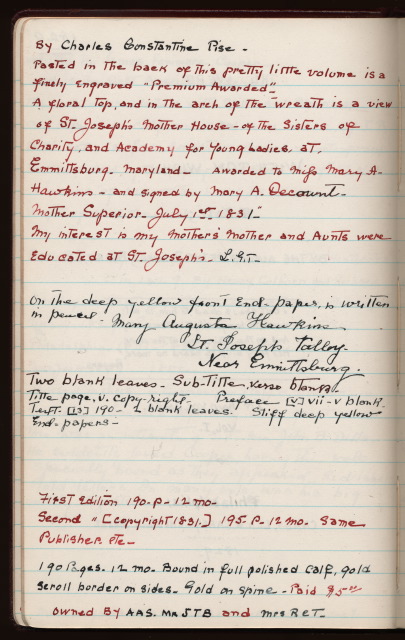 By Charles Constantine Pise -
Pasted in the back of this pretty little volume is a
finely engraved "Premium Awarded"
A floral top, and in the arch of the wreath is a view
of St. Joseph's Mother House - of the Sisters of
Charity, and Academy for Young Ladies, at,
Emmittsburg. Maryland - Awarded to Miss Mary A-
Hawkins - and signed by Mary A. Decount.
Mother Superior - July 1st 1831-"
My interest is my Mother's Mother and Aunts were
Educated at St. Joseph's - L.G.T-
On the deep yellow front End-paper, is written
in pencil - Mary Augusta Hawkins
St. Joseph's Valley.
Near Emmittsburg.
Two blank leaves - Sub-Title, verso blank-
Title page, v. copy-right - Preface [v] vii - v blank.
Text. [13] 190 - 2 blank leaves. Stiff deep yellow
End-papers -
First Edition 190. p - 12 mo -
Second " [copyright 1831.] 195. p - 12 mo. Same
Publisher etc -
190 Pages. 12 mo. Bound in full polished calf, gold
scroll border on sides - Gold on spine - Paid $5.00
Owned By AAS. Mr STB and Mrs RET -